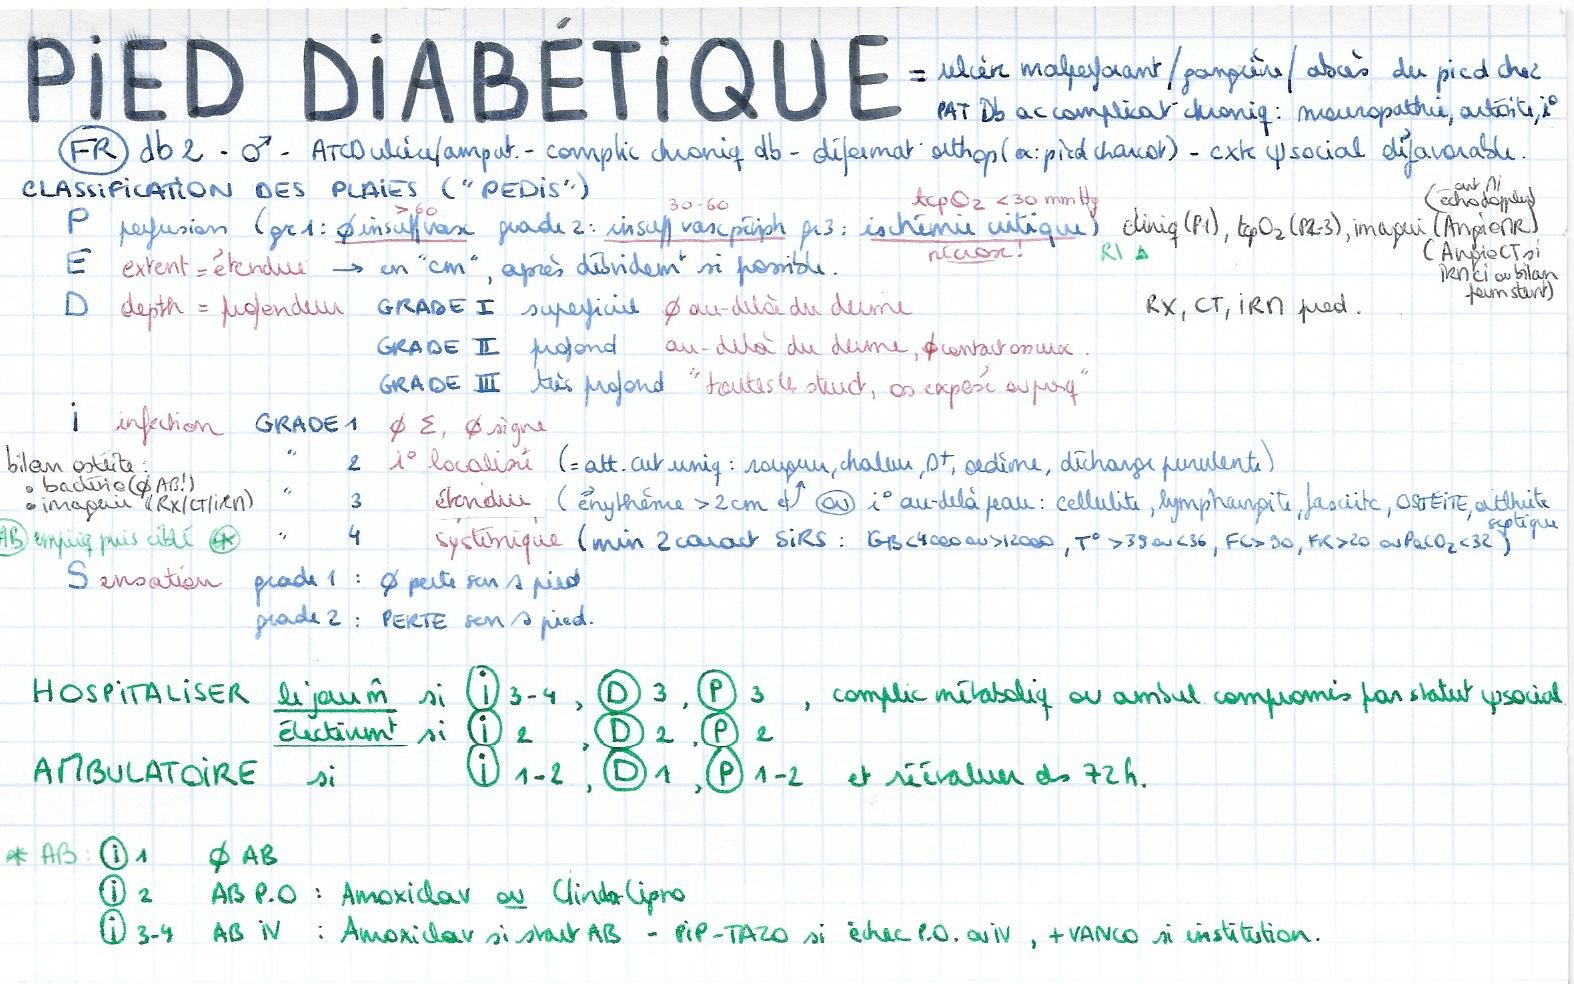 PIED DIABÉTIQUE = ulcère malperforant/gangrène/abcès du pied chez
PAT Db ac complicat° chroniq: neuropathie, artérite, i°
FR db 2 - ♂ - ATCD ulcère/amput. - complic chroniq db - déformat° orthop (ex: pied charcot) - cxte ψsocial défavorable.
CLASSIFICATION DES PLAIES ("PEDIS")
>60 30-60 tcpO₂ <30 mmHg (echodoppler)
P perfusion (gr 1: ∅ insuff vasc grade 2: insuff vasc périph gr 3: ischémie critique) cliniq (P1), tcpO₂ (P2-3), imagerie (AngioIRM)
nécrose!
(AngioCT si
IRM ci ou bilan
E extent = étendue → en "cm", après débridemt si possible.
D depth = profondeur GRADE I superficiel ∅ au-delà du derme RX, CT, IRM pied.
GRADE II profond au-delà du derme, ∅ contact osseux.
GRADE III très profond "toutes le struct, os exposé ou perçu"
i infection GRADE 1 ∅ Σ, ∅ signe
bilan ostéite:
" 2 i° localisée (= att. cut uniq: rougeur, chaleur, D+, oedème, décharge purulente)
• bactério (∅ AB!)
• imagerie (RX/CT/IRM)
" 3 étendue (érythème > 2 cm et ou i° au-delà peau: cellulite, lymphangite, fasciite, OSTÉITE, arthrite septique
AB empiriq puis ciblé * " 4 systémique (min 2 caract SIRS: GB<4000 ou >12000, T° >39 ou <36, FC>90, FR>20 ou PaCO₂ <32)
Sensation grade 1 : ∅ perte sens pied
grade 2 : PERTE sens pied.
HOSPITALISER le jour m̂ si i 3-4, D 3, P 3, complic métaboliq ou ambul compromis par statut ψsocial
électivmt si i 2, D 2, P 2
AMBULATOIRE si i 1-2, D 1, P 1-2 et réévaluer ds 72h.
* AB: i 1 ∅ AB
i 2 AB P.O : Amoxiclav ou Clinda-Cipro
i 3-4 AB IV : Amoxiclav si start AB - PIP-TAZO si échec P.O. ou IV, + VANCO si institution.